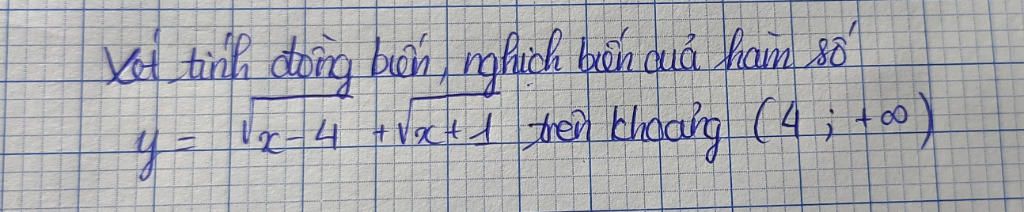 Xét tính đồng biến, nghịch biến quả hàm số
y = √x-4 + √x+1 trên khoảng (4; +∞)